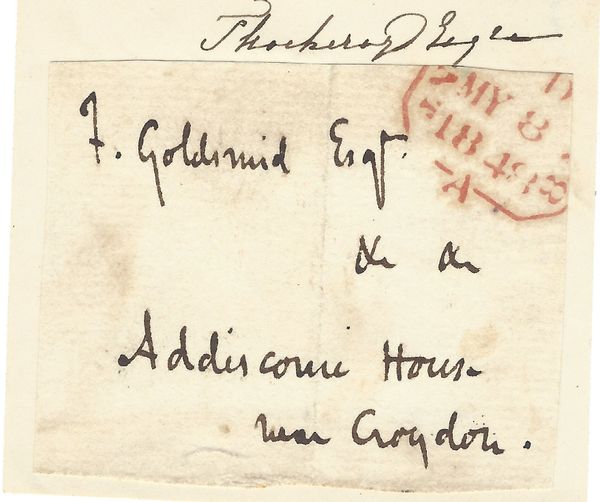 Thackeray Esqre
F. Goldsmid Esqr.
&c &c
Addiscombe House
near Croydon.
MY 8
1848
A